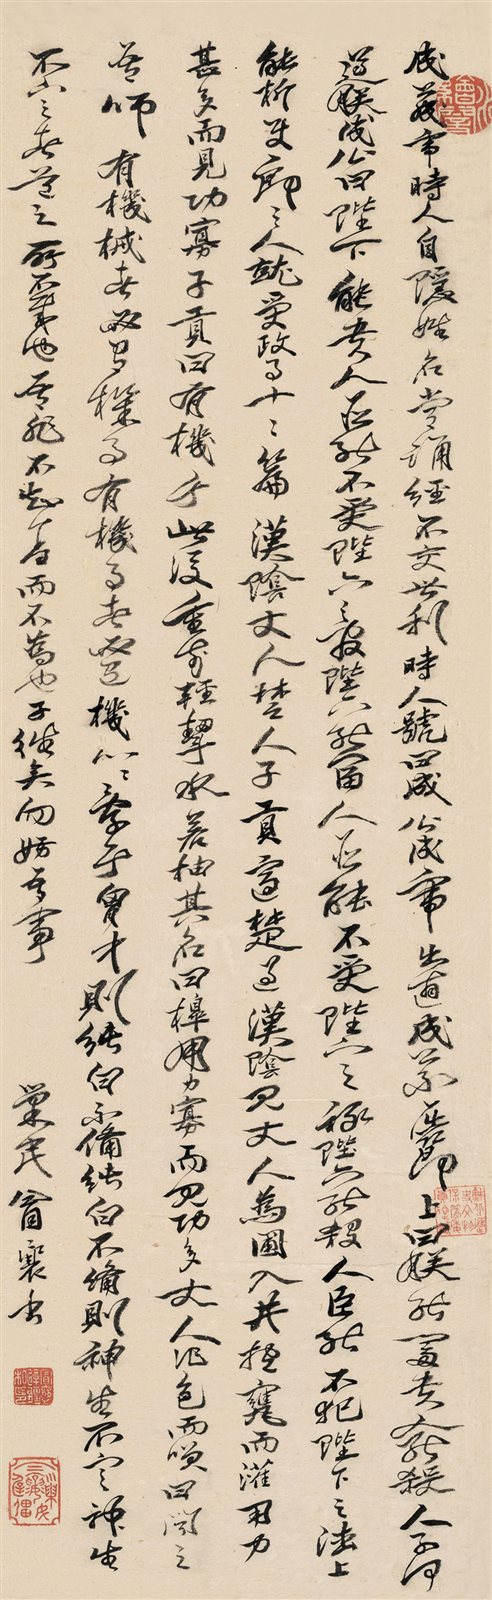 成公帝時人自隱姓名常誦經不交世利時人號曰成公成帝出遊成公不屈節上曰朕能富貴人能殺人子何
逆朕成公曰陛下能貴人臣能不受陛下之官陛下能富人臣能不受陛下之祿陛下能殺人臣能不犯陛下之法上
能折使郎二人就受政事十二篇漢陰丈人楚人子貢適楚過漢陰見丈人為圃入井抱甕而灌用力
甚多而見功寡子貢曰有機于此後重前輕挈水若抽其名曰槔用力寡而見功多丈人作色而笑曰聞之
吾師有機械者必有機事有機事者必有機心機心存于胷中則純白不備純白不備則神生不定神生
不定者道之所不載也吾非不知羞而不為也子往矣勿妨吾事
巢民冒襄書